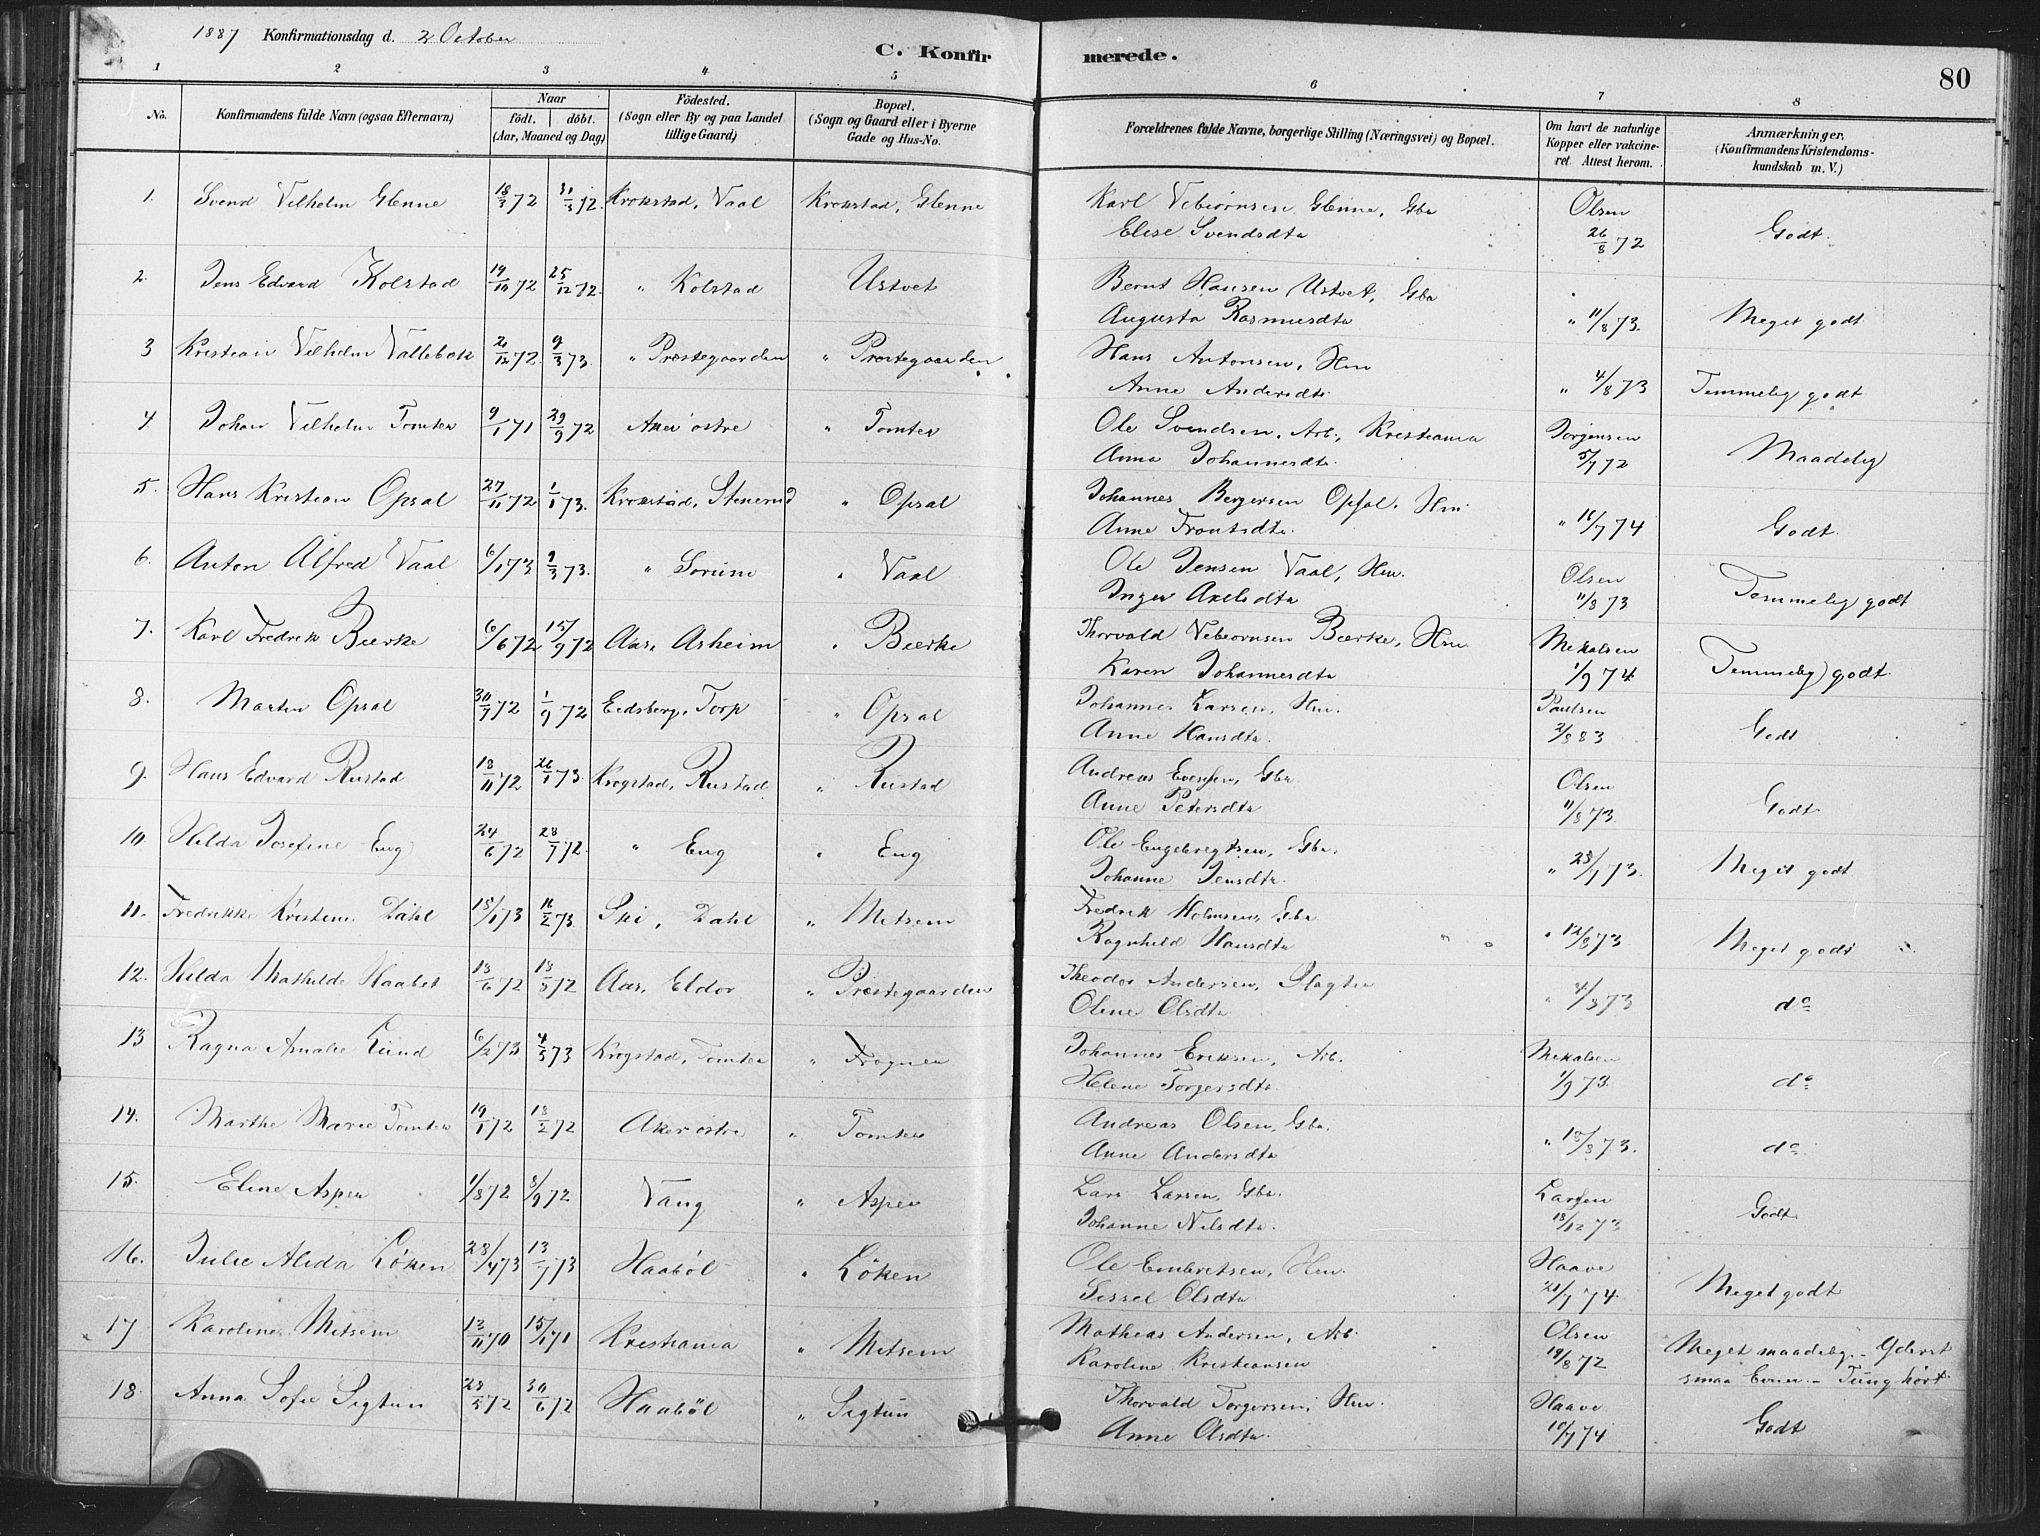 1887 Konfirmationsdag d. 2 October
C. Konfirmerede.
80
1 2 3 4 5 6 7 8
No. Konfirmandens fulde Navn (ogsaa Efternavn) Naar födt. döbt. (Aar, Maaned og Dag) Födested. (Sogn eller By og paa Landet tillige Gaard) Bopæl. (Sogn og Gaard eller i Byerne Gade og Hus-No. Forældrenes fulde Navne, borgerlige Stilling (Næringsvei) og Bopæl. Om havt de naturlige Kopper eller vakcineret. Attest herom. Anmærkninger. (Konfirmandens Kristendomskundskab m. V.)
1. Svend Vilhelm Glenne 18/3 72 31/3 72. Krokstad, Vaal Krokstad, Glenne Karl Vebiørnsen Glenne, Gbr Olsen
Elise Svendsdtr 26/8 72 Godt.
2. Jens Edvard Kolstad 19/10 72 25/12 72. " Kolstad Ustvet Bernt Hansen Ustvet, Gbr
Augusta Rasmusdtr " 11/8 73. Meget godt
3 Kristian Vilhelm Vallebæk 2/12 72 9/3 73. " Prostegaarden " Prestegaarden Hans Antonsen, Hm
Anne Andersdtr. " 4/8 73 Temmelig godt
4 Johan Vilhelm Tomter 9/1 71 29/9 72 Aker østre " Tomter Ole Svendsen, Arb., Kristiania Jørgensen
Anna Johannesdtr. 5/7 72 Maadelig
5. Hans Kristian Opsal 27/11 72 1/1 73. Krokstad, Stenerud " Opsal Johannes Bergersen Opsal. Hm.
Anne Trontsdtr. " 16/7 74 Godt.
6. Anton Alfred Vaal 6/1 73 9/3 73. " Sorum " Vaal Ole Jensen Vaal, Hm. Olsen
Inger Axelsdtr 11/8 73 Temmelig godt
7. Karl Fredrik Bierke 6/6 72 15/9 72 Aas, Asheim " Bierke Thorvald Vebiørnsen Bierke, Hm Mikalsen
Karen Johannesdtr 1/9 74. Temmelig godt.
8. Martin Opsal 30/7 72 1/9 72 Eidsberg, Torp " Opsal Johannes Larsen, Hm. Paulsen
Anne Hansdtr. 2/8 83 Godt
9. Hans Edvard Rustad 18/11 72 26/1 73. Krogstad, Rustad " Rustad Andreas Evensen, Gbr. Olsen
Anne Petersdtr 11/8 73. Godt
10. Hilda Josefine Eng 24/6 72 28/7 72. " Eng " Eng Ole Engebregtsen, Gbr.
Johanne Jensdtr. " 28/7 73. Meget godt
11. Fredrikke Kristine Dahl 15/1 73 16/2 73. Ski, Dahl " Mitsem Fredrik Holmsen, Gbr
Ragnhild Hansdtr " 12/8 73 Meget godt
12. Hilda Mathilde Haabet 13/6 72 13/5 72 Aas, Eldor " Præstegaarden Theodor Andersen, Slagter
Oline Olsdtr " 4/8 73 do
13 Ragna Amalie Lund 6/2 73 4/5 73 Krogstad, Tomter " Frogner Johannes Eriksen, Arb. Mikalsen
Helene Torgersdtr. 1/9 73. do
14. Marthe Marie Tomter 19/1 72 18/2 72 Aker østre " Tomter Andreas Olsen, Gbr.
Anne Andersdtr " 18/8 73. do
15. Eline Aspen 1/8 72 8/9 72 Vang " Aspen Lars Larsen, Gbr. Larsen
Johanne Nilsdtr. 18/12 73 Godt
16. Julie Alida Løken 28/4 73 13/7 73 Haabøl " Løken Ole Embretsen, Hm. Haave
Sissel Olsdtr 21/7 74. Meget godt
17 Karoline Mitsem 13/11 70 15/1 71 Kristiania " Mitsem Mathias Andersen, Arb. Olsen
Karoline Kristiansen 19/8 72 Meget maadelig. - Yderst smaa Evner. - Tung hørt.
18. Anna Sofie Sigtun 23/5 72 30/6 72 Haabøl " Sigtun Thorvald Torgersen, Hm. Haave
Anne Olsdtr. 10/7 74 Godt